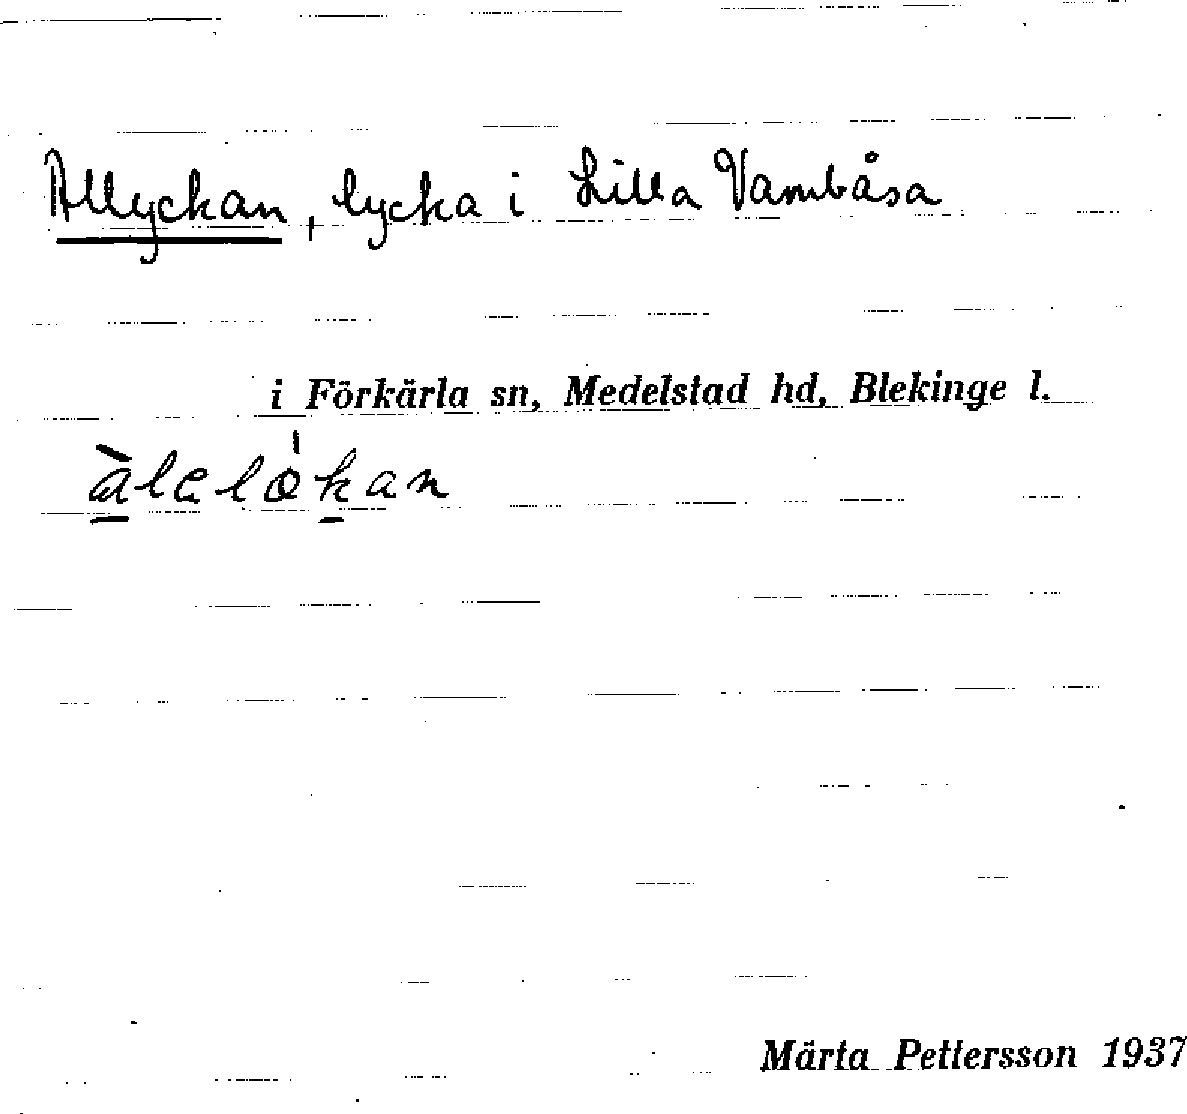 Allyckan, lycka i Lilla Vambåsa
i Förkärla sn, Medelstad hd, Blekinge l.
àlelòkan
Märta Pettersson 1937